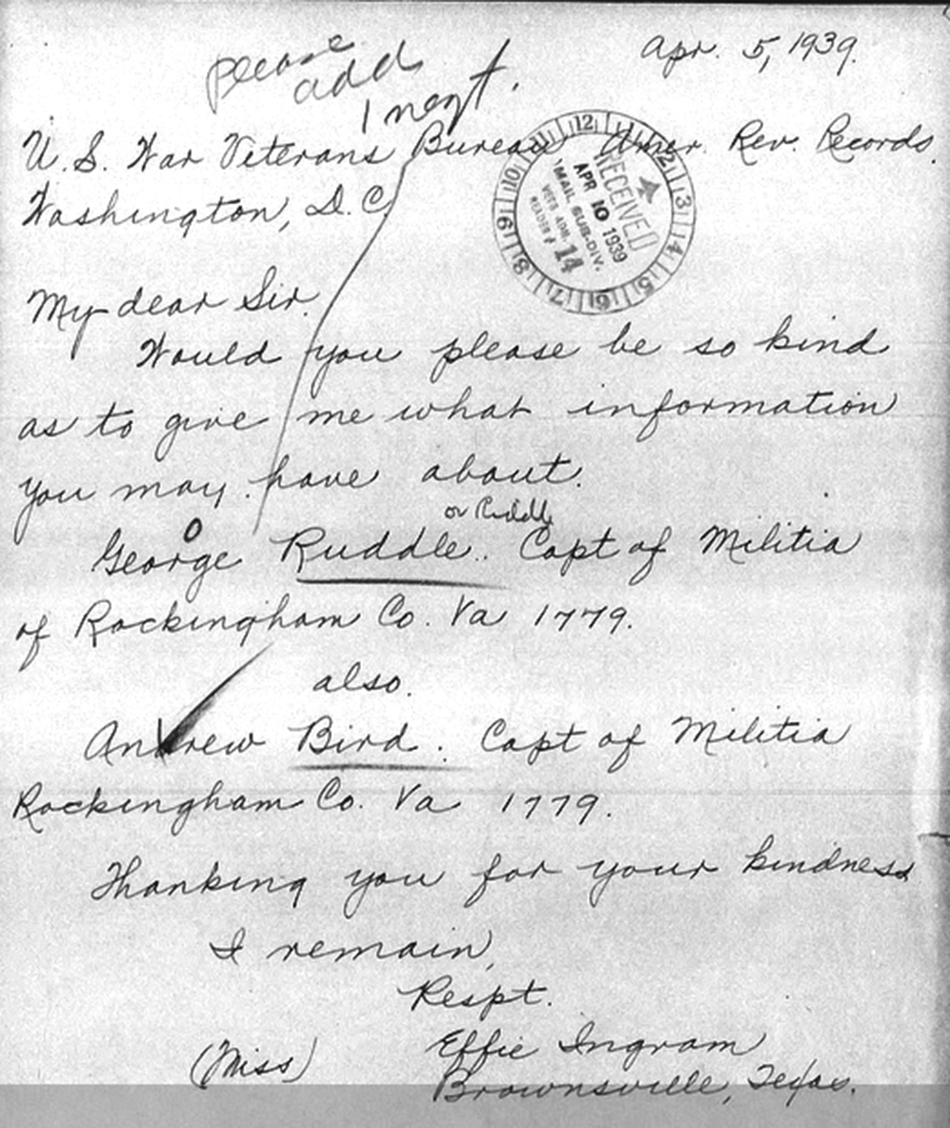 Apr. 5, 1939.
please
add
1 negt.
U. S. War Veterans Bureau Amer. Rev. Records.
Washington, D.C.
12 2 3 4 5 6 7 8 9 10 11
RECEIVED
APR 10 1939
MAIL SUB-DIV.
VETS ADM.
READER # 14
My dear Sir.
Would you please be so kind
as to give me what information
you may have about.
or Riddle
George Ruddle.. Capt of Militia
of Rockingham Co. Va 1779.
also.
Andrew Bird. Capt of Militia
Rockingham Co. Va 1779.
Thanking you for your kindness
I remain,
Respt.
(Miss) Effie Ingram
Brownsville, Texas.